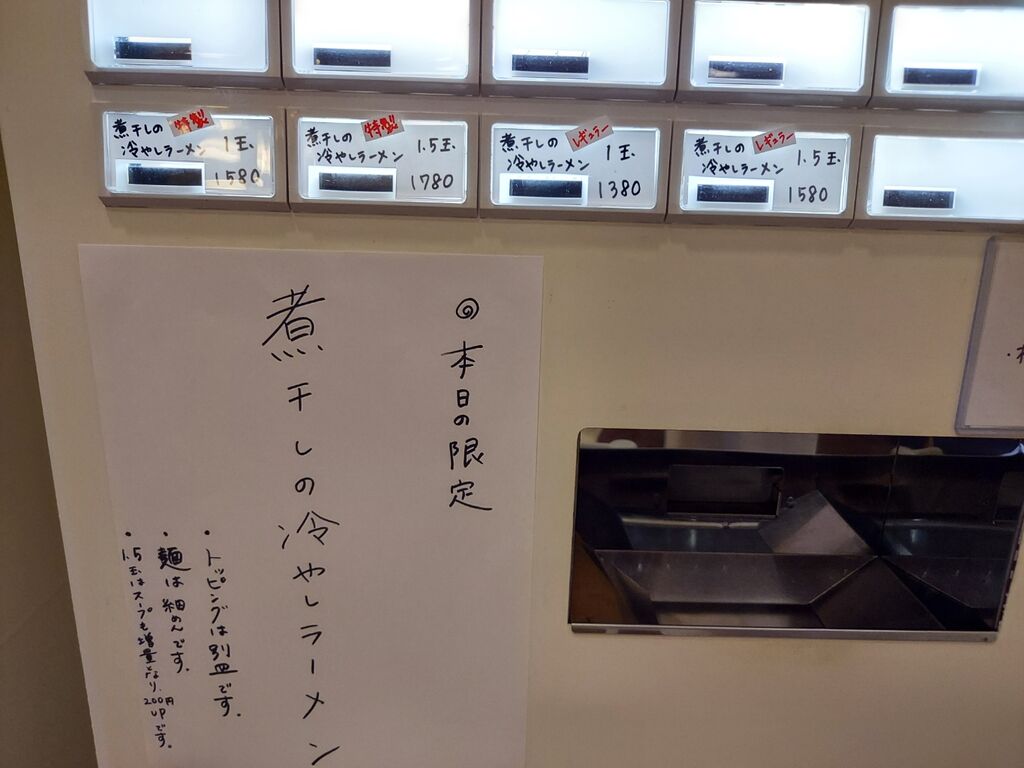 煮干しの 特製
冷やしラーメン 1玉
1580
煮干しの 特製
冷やしラーメン 1.5玉
1780
煮干しの レギュラー
冷やしラーメン 1玉
1380
煮干しの レギュラー
冷やしラーメン 1.5玉
1580
◎本日の限定
煮干しの冷やしラーメン
・トッピングは別皿です。
・麺は細めんです。
・1.5玉はスープも増量となり、200円UPです。